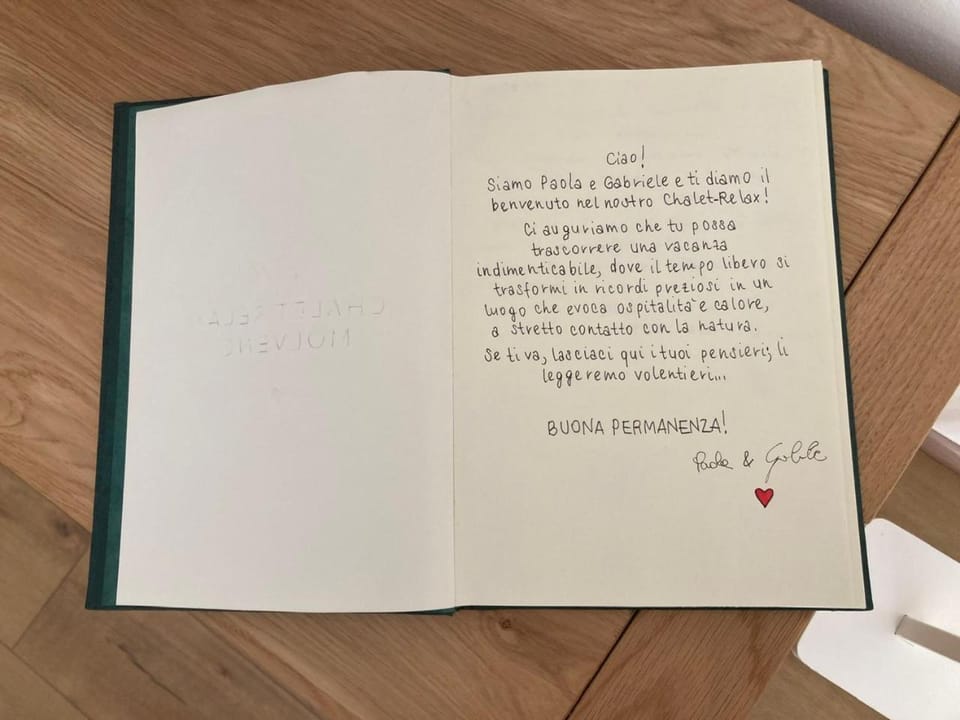 Ciao!
Siamo Paola e Gabriele e ti diamo il
benvenuto nel nostro Chalet-Relax!
Ci auguriamo che tu possa
trascorrere una vacanza
indimenticabile, dove il tempo libero si
trasformi in ricordi preziosi in un
luogo che evoca ospitalità e calore,
a stretto contatto con la natura.
Se ti va, lasciaci qui i tuoi pensieri; li
leggeremo volentieri...
BUONA PERMANENZA!
Paola & Gabriele